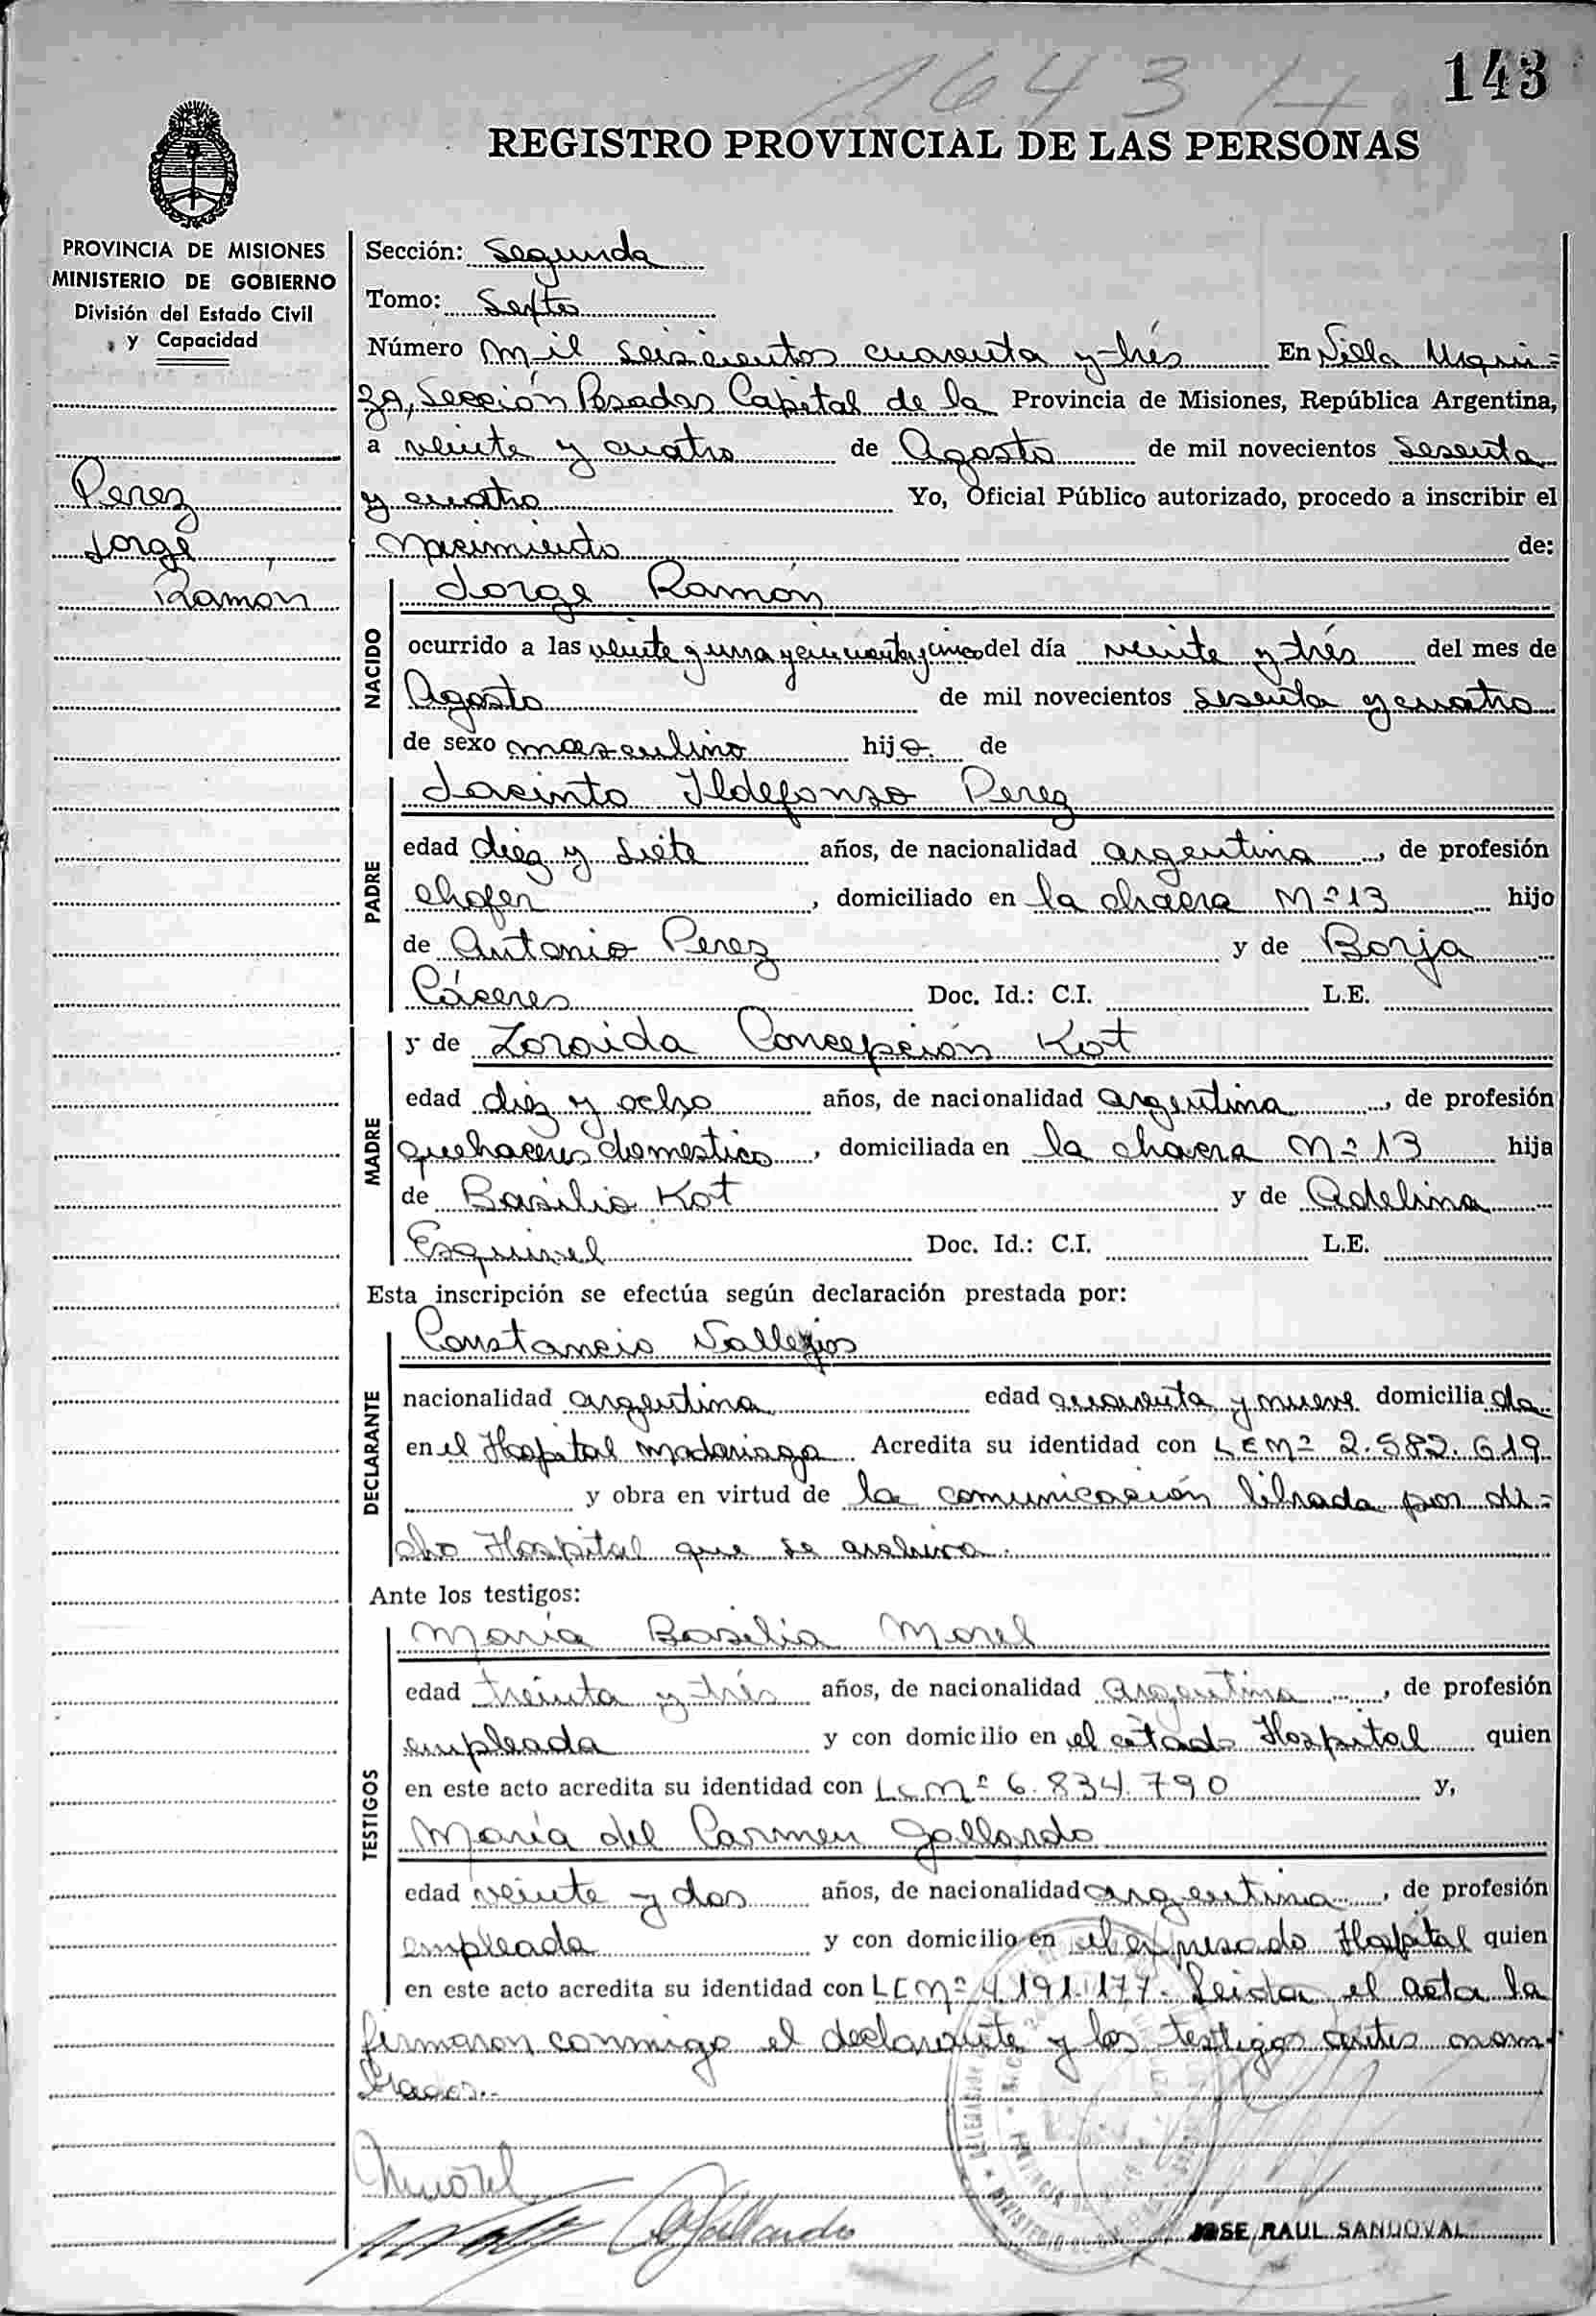 1643 H
143
REGISTRO PROVINCIAL DE LAS PERSONAS
PROVINCIA DE MISIONES
MINISTERIO DE GOBIERNO
División del Estado Civil
y Capacidad
Perez
Jorge
Ramón
Sección: Segunda
Tomo: Sexto
Número mil seiscientos cuarenta y trés En Villa Urqui=
za, Sección Posadas Capital de la Provincia de Misiones, República Argentina,
a veinte y cuatro de Agosto de mil novecientos sesenta
y cuatro Yo, Oficial Público autorizado, procedo a inscribir el
nacimiento de:
NACIDO
Jorge Ramón
ocurrido a las veinte y una y cincuenta y cinco del día veinte y trés del mes de
Agosto de mil novecientos sesenta y cuatro
de sexo masculino hijo de
PADRE
Jacinto Ildefonso Perez
edad diez y siete años, de nacionalidad argentina, de profesión
chofer, domiciliado en la chacra Nº 13 hijo
de Antonio Perez y de Borja
Cáceres Doc. Id.: C.I. L.E.
MADRE
y de Zoroida Concepción Kot
edad diez y ocho años, de nacionalidad argentina, de profesión
quehaceres domestico, domiciliada en la chacra Nº 13 hija
de Basilio Kot y de Adelina
Esquivel Doc. Id.: C.I. L.E.
Esta inscripción se efectúa según declaración prestada por:
DECLARANTE
Constancio Vallejos
nacionalidad argentina edad cuarenta y nueve domicilia da
en el Hospital Madariaga Acredita su identidad con L E Nº 2.582.619
y obra en virtud de la comunicación librada por di=
cho Hospital que se archiva.
Ante los testigos:
TESTIGOS
María Basilia Morel
edad treinta y trés años, de nacionalidad Argentina, de profesión
empleada y con domicilio en el citado Hospital quien
en este acto acredita su identidad con L c Nº 6.834.790 y,
María del Carmen Gallardo
edad veinte y dos años, de nacionalidad argentina, de profesión
empleada y con domicilio en el expresado Hospital quien
en este acto acredita su identidad con L C Nº 4.191.177. Leida el acta la
firmaron conmigo el declarante y los testigos antes nom-
brados.-
Morel
Gallardo
JOSE RAUL SANDOVAL